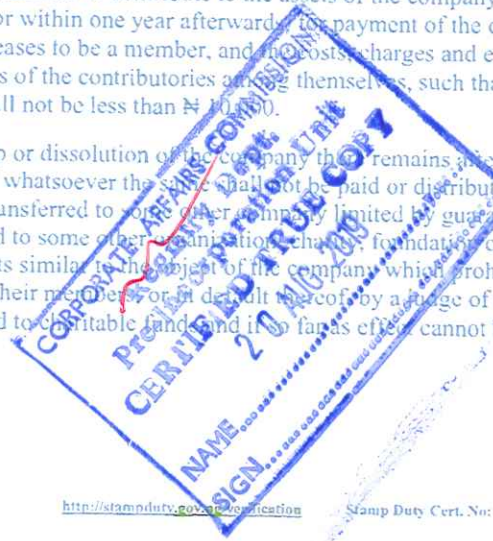 or within one year afterwards, for payment of the
eases to be a member, and the costs, charges and e
s of the contributories among themselves, such tha
ll not be less than ₦ 10,000.
o or dissolution of the company there remains after
whatsoever the same shall not be paid or distribut
ansferred to some other company limited by guar
d to some other organisation, charity foundation o
ts similar to the object of the company which proh
their members, or in default thereof by a judge of
d to charitable funds and if so far as effect cannot
CORPORATE AFFAIRS COMMISSION
CERTIFIED TRUE COPY
20 AUG 2019
NAME
SIGN
http://stampduty.gov.ng/verification
Stamp Duty Cert. No: